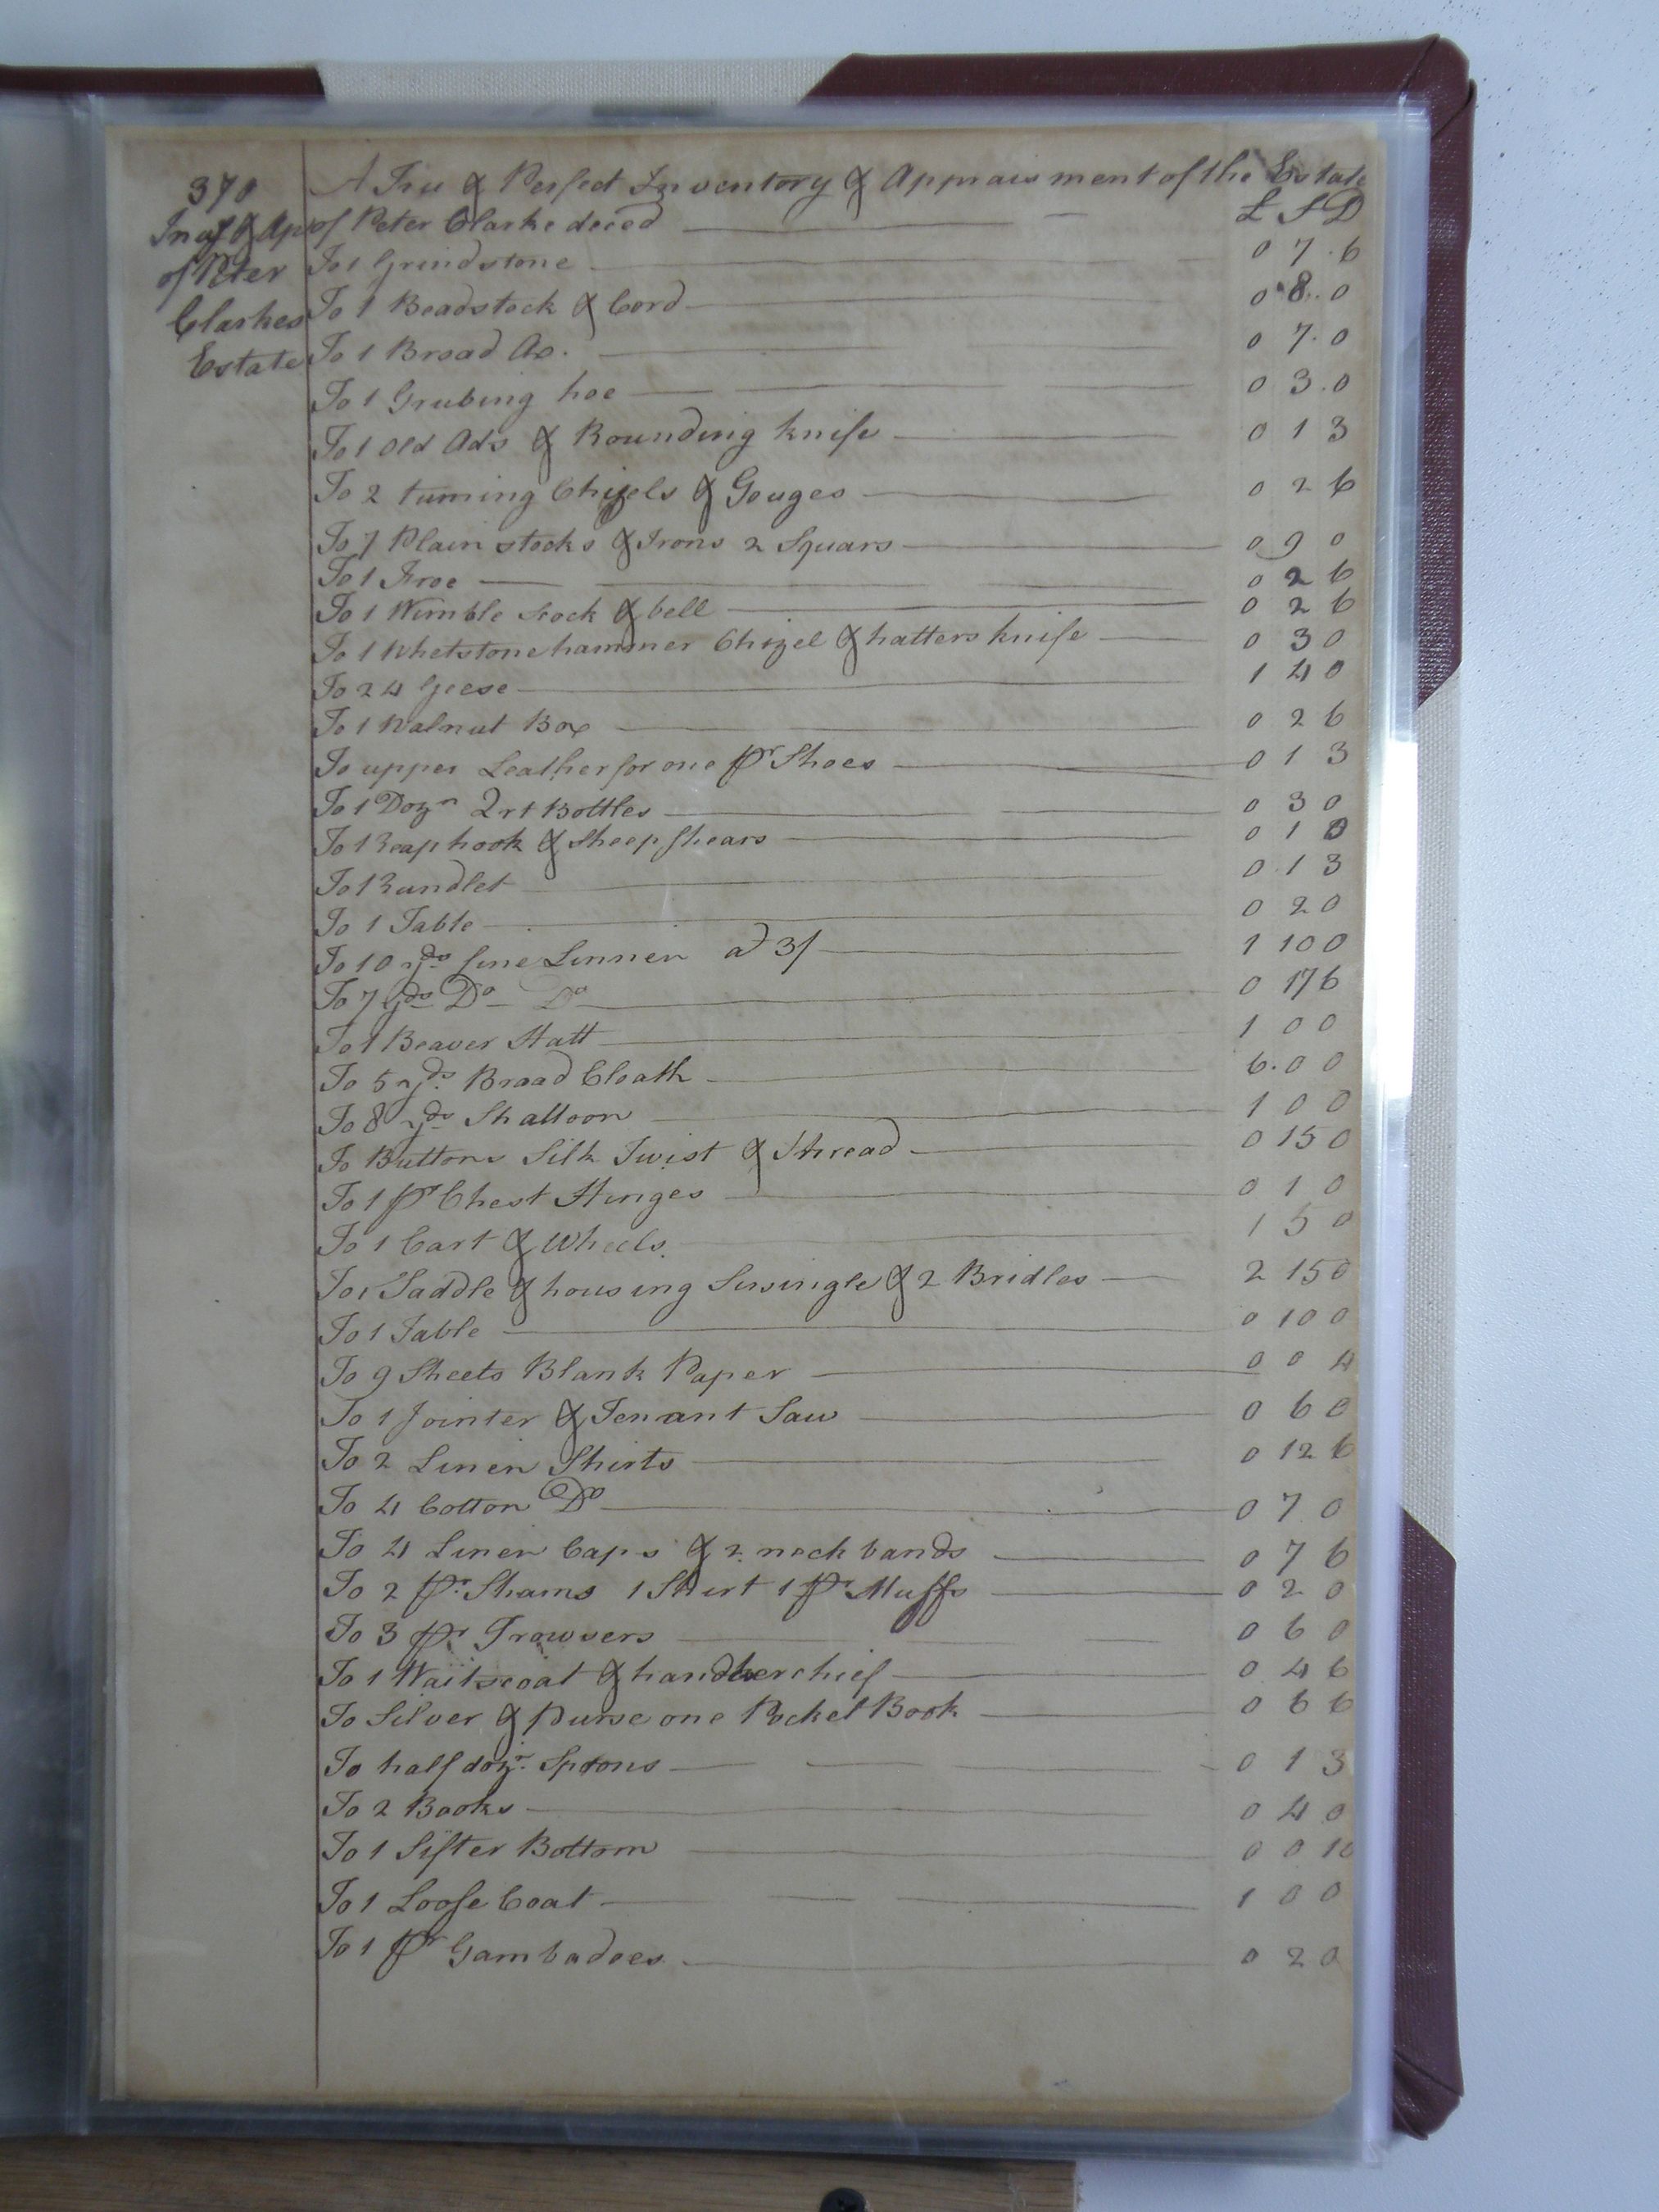 370
Inv & Ap
of Peter
Clarkes
Estate
A Tru & Perfect Inventory & Appraisment of the Estate
of Peter Clarke deced £ S D
To 1 Grindstone 0 7 6
To 1 Beadstock & Cord 0 8 0
To 1 Broad Ax 0 7 0
To 1 Grubing hoe 0 3 0
To 1 Old Ads & Rounding knife 0 1 3
To 2 turning Chizels & Gouges 0 2 6
To 7 Plain stocks & Irons 2 Squars 0 9 0
To 1 Froe 0 2 6
To 1 Wimble stock & bell 0 2 6
To 1 Whetstone hammer Chizel & hatters knife 0 3 0
To 24 Geese 1 4 0
To 1 Walnut Box 0 2 6
To upper Leather for one pr Shoes 0 1 3
To 1 Dozn Qrt Bottles 0 3 0
To 1 Reap hook & Sheep Shears 0 1 8
To 1 Rundlet 0 1 3
To 1 Table 0 2 0
To 10 yds fine Linnen at 3/ 1 10 0
To 7 yds Do Do 0 17 6
To 1 Beaver Hatt 1 0 0
To 5 yds Broad Cloath 6 0 0
To 8 yds Shalloon 1 0 0
To Buttons Silk Twist & thread 0 15 0
To 1 pr Chest Hinges 0 1 0
To 1 Cart & Wheels 1 5 0
To 1 Saddle & housing Sirsingle & 2 Bridles 2 15 0
To 1 Table 0 10 0
To 9 Sheets Blank Paper 0 0 4
To 1 Jointer & Tenant Saw 0 6 0
To 2 Linen Shirts 0 12 6
To 4 Cotton Do 0 7 0
To 4 Linen Caps & 2 neck bands 0 7 6
To 2 pr Shams 1 Shirt 1 pr Muffs 0 2 0
To 3 pr Trowsers 0 6 0
To 1 Waitscoat & handkerchief 0 4 6
To Silver & purse one Pocket Book 0 6 6
To half dozn Spoons 0 1 3
To 2 Books 0 4 0
To 1 Sifter Bottom 0 0 10
To 1 Loose Coat 1 0 0
To 1 pr Gambadoes 0 2 0